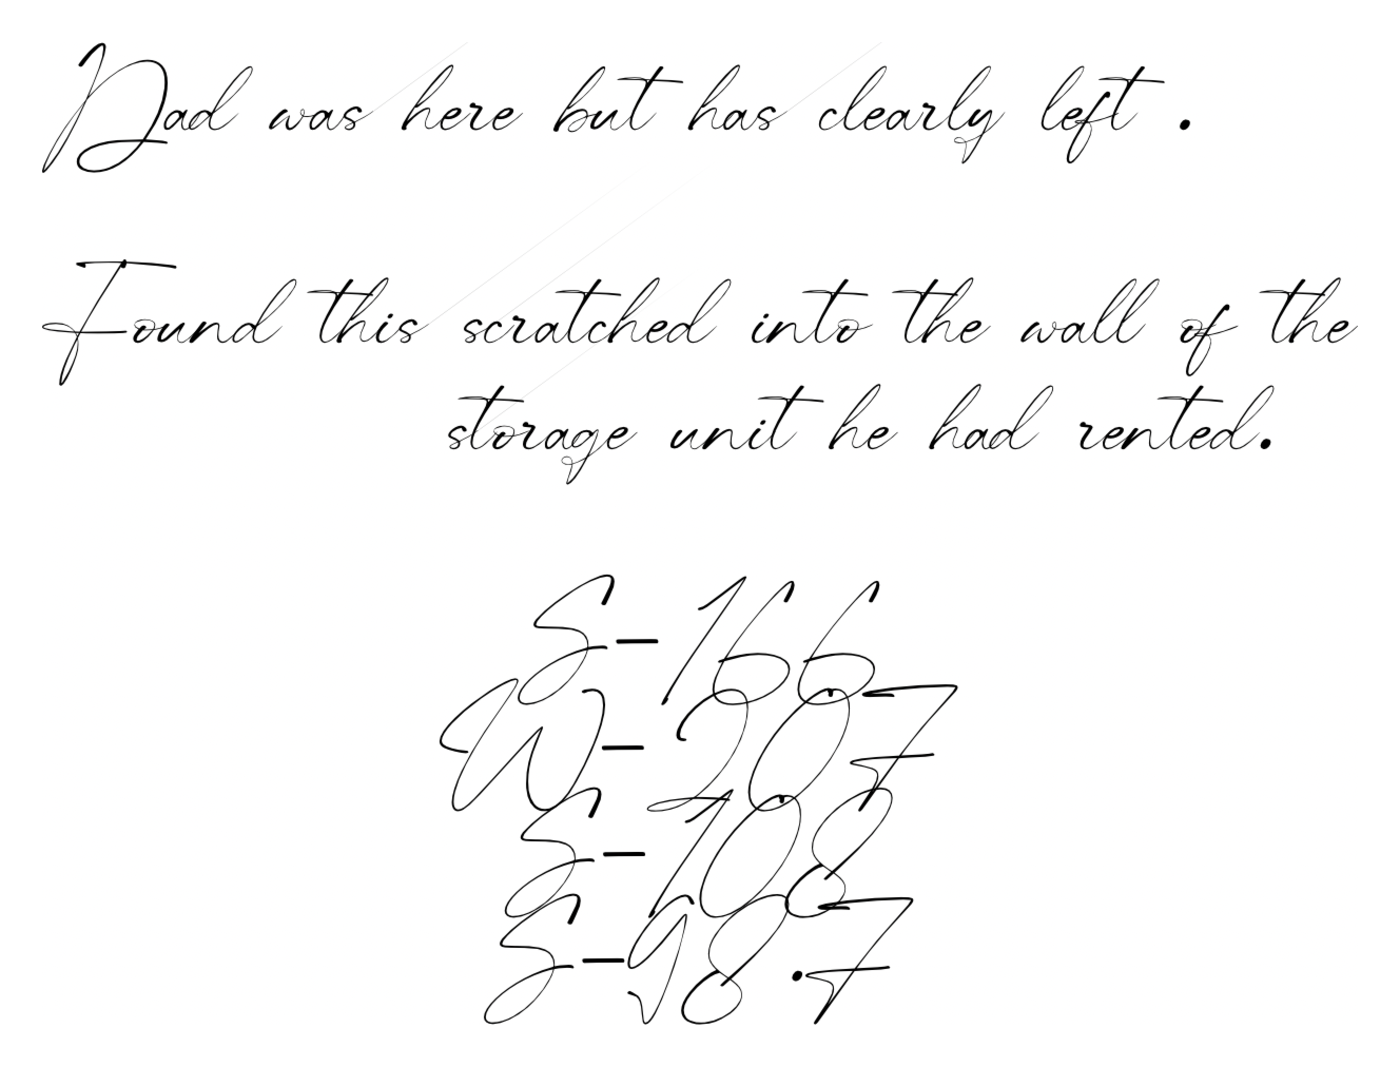 Dad was here but has clearly left .
Found this scratched into the wall of the
storage unit he had rented.
S-166
W-207
S-108
S-98.7